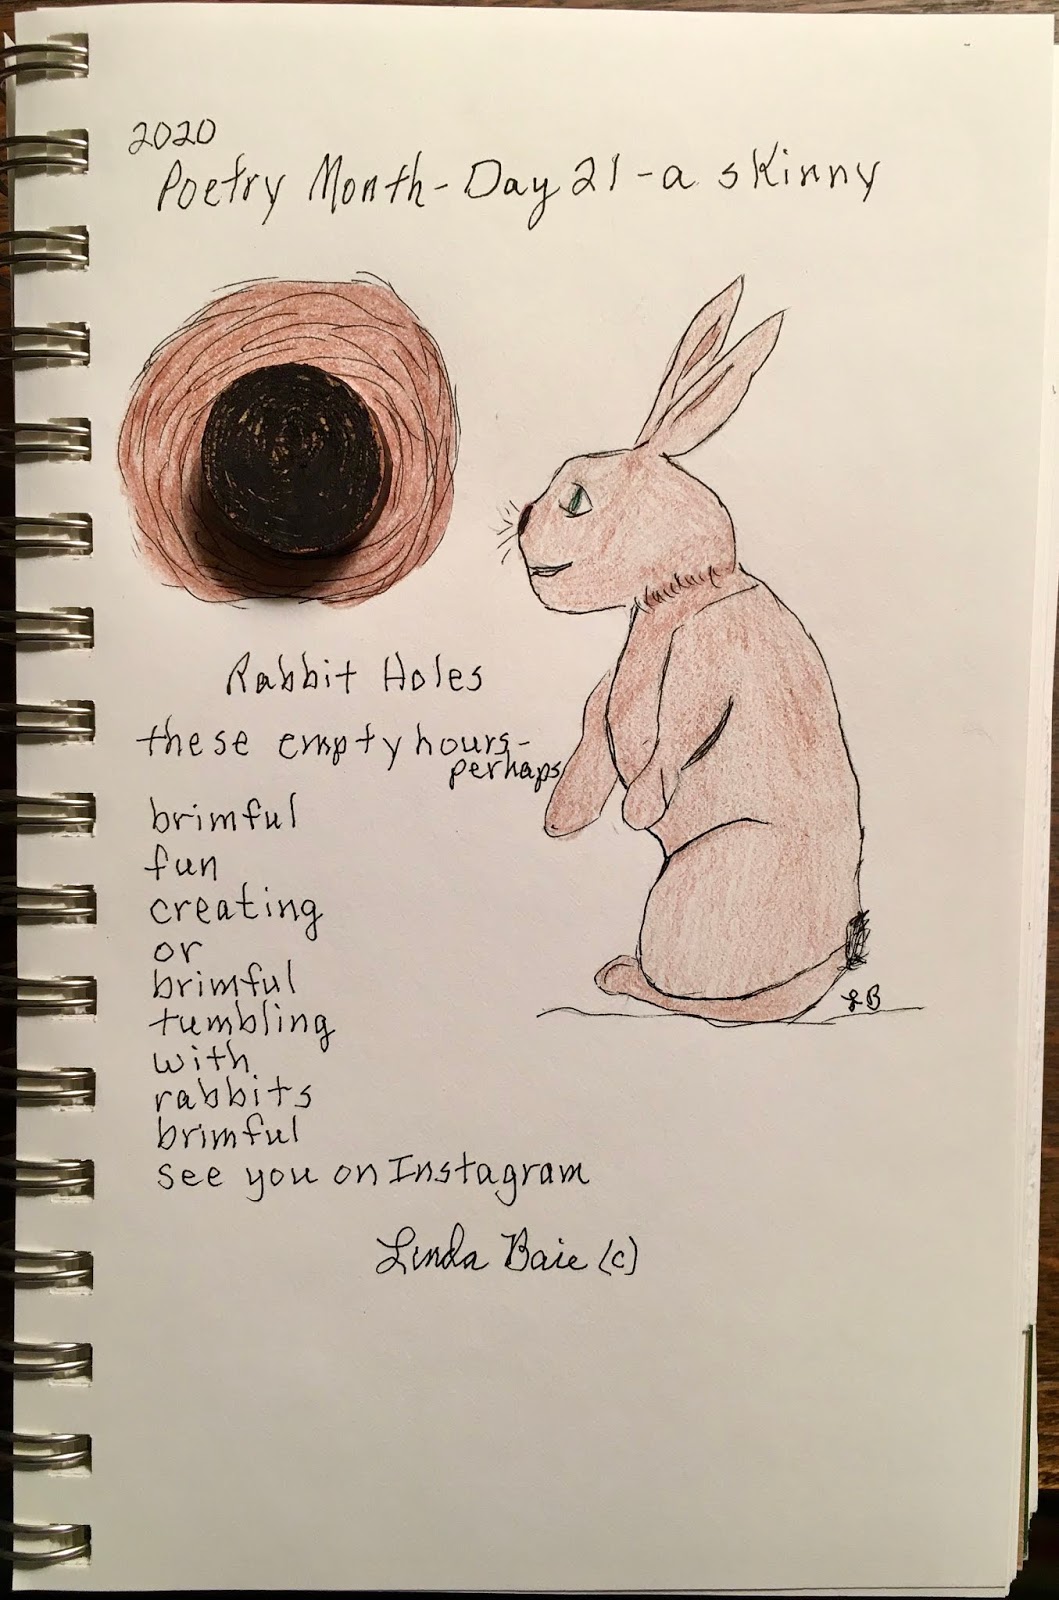 2020
Poetry Month - Day 21 - a skinny
Rabbit Holes
these empty hours -
perhaps
brimful
fun
creating
or
brimful
tumbling
with
rabbits
brimful
see you on Instagram
LB
Linda Baie (c)